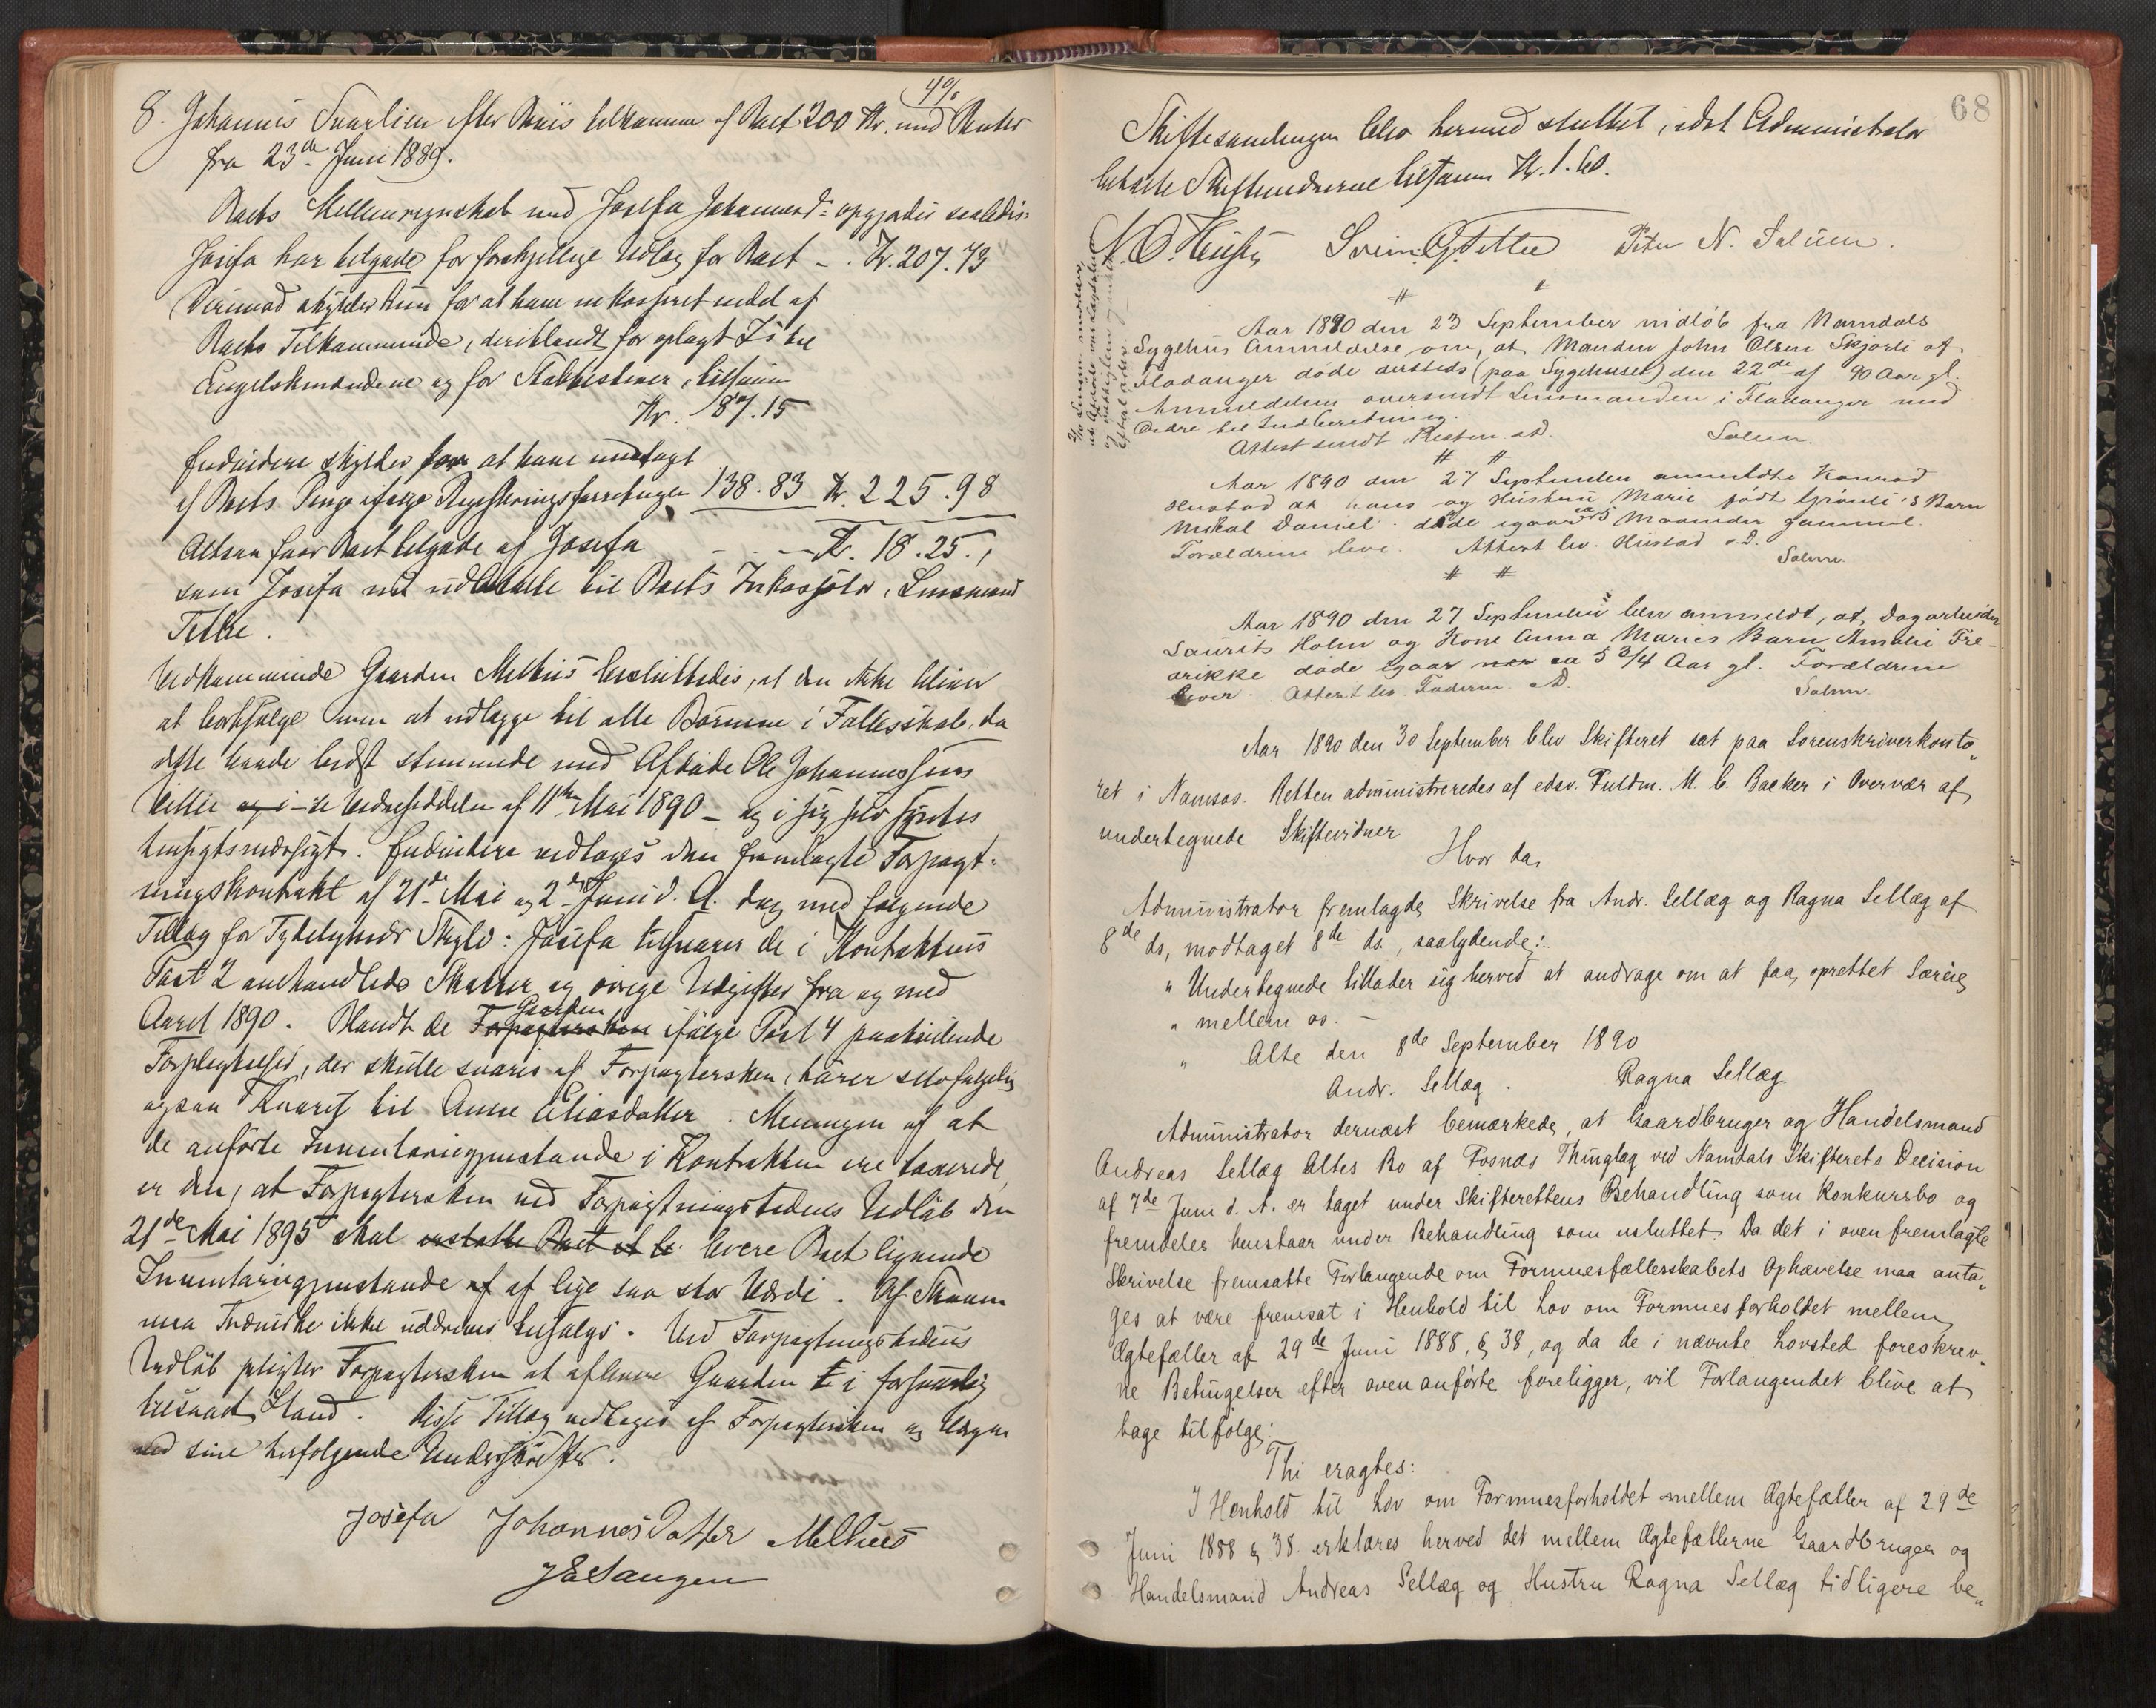 4%
8. Johannes Svarlien efter Bevis tilkomme af Boet 200 Kr. med Renter
fra 23de Juni 1889.
Boets Mellemregnskab med Josefa Johannesd. opgjordes saaledes:
Josefa har tilgode for forskjellige Udlæg for Boet - . Kr. 207.73
Derimod skylder hun for at have inkasseret endel af
Boets Tilkommende, deriblandt for oplagt Is til
Engelskmændene og for Stabbestener, tilsam
Kr. 87.15
Endvidere skylder for at have modtaget
af Boets Penge ifølge Registreringsforretningen 138.83 Kr. 225.98
Altsaa faar Boet tilgode af Josefa - . - - Kr. 18.25.,
som Josefa nu udbetalte til Boets Inkassator, Lensmand
Tetlie.
Vedkommende Gaarden Melhus besluttedes, at den ikke bliver
at bortsælge men at udlægge til alle Børnene i Fællesskab, da
dette havde bedst stemmende med Afdøde Ole Johannessens
Villie og i Vidnesedelen af 11te Mai 1890 - og i sig selv syntes
hensigtsmæssigt. Endvidere vedtoges den fremlagte Forpagt-
ningskontrakt af 21de Mai og 2den Juni d. A. dog med følgende
Tillæg for Tydeligheds Skyld: Josefa tilsvarer de i Kontraktens
Post 2 omhandlede Skatter og øvrige Udgifter fra og med
Aaret 1890. Blandt de Gaarden ifølge Post 4 paahvilende
Forpligtelser, der skulle svares af Forpagtersken, hører selvfølgelig
ogsaa Kaaret til Anne Eliasdatter. Meningen af at
de anførte Inventariegjenstande i Kontrakten ere taxerede,
er den, at Forpagtersken ved Forpagtningstidens Udløb den
21de Mai 1895 skal erstatte Boet levere Boet lignende
Inventariegjenstande af af lige saa stor Værdi. Af Skoven
maa Trævirke ikke uddrives tilsalgs. Ved Forpagtningstidens
Udløb pligter Forpagtersken at aflevere Gaarden i forsvarlig
tilsaaet Stand. Disse Tillæg vedtoges af Forpagtersken og Værgen
ved sine herfølgende Underskrifter.
Josefa Johannesdatter Melhus
J E Saugen
68
Skiftesamlingen blev hermed sluttet, idet Administrator
betalte Skiftevidnerne tilsamm Kr. 1.60.
Svein G. Tetlie Peter N. Salien.
Aar 1890 den 23 September indløb fra Namdals
Sygehus Anmeldelse om, at Manden John Olsen Skjærli af
Fladanger døde dersteds (paa Sygehuset) den 22de af 90 Aar gl.
Anmeldelsen oversendt Lensmanden i Fladanger med
Ordre til Indberetning.
Attest sendt Presten s.D.
Aar 1890 den 27 September anmeldte Konrad
Hustad at hans og Hustru Marie født Grønli's Barn
Mikal Daniel døde igaar ca 5 Maaneder gammel
Forældrene leve. Attest lev. Hustad s.D.
Aar 1890 den 27 September blev anmeldt, at Dagarbeider
Laurits Holm og Kone Anna Maries Barn Amalie Fre-
drikke døde igaar nær ca 5 3/4 Aar gl. Forældrene
lever. Attest lev. Faderen s.D.
Aar 1890 den 30 September blev Skifteret sat paa Sorenskriverkonto„
ret i Namsos. Retten administreredes af edsv. Fuldm. M. C. Backer i Overvær af
undertegnede Skiftevidner
Hvor da,
Administrator fremlagde Skrivelse fra Andr. Sellæg og Ragna Sellæg af
8de ds, modtaget 8de ds., saalydende:
" Undertegnede tillader sig herved at andrage om at faa, oprettet Særeie
" mellem os. -
" Alte den 8de September 1890
Andr. Sellæg. Ragna Sellæg
Administrator dernæst bemærkede, at Gaardbruger og Handelsmand
Andreas Sellæg Altes Bo af Fosnæs Thinglag ved Namdals Skifterets Decision
af 7de Juni d. A. er taget under Skifterettens Behandling som Konkursbo og
fremdeles henstaar under Behandling som usluttet. Da det i oven fremlagte
Skrivelse fremsatte Forlangende om Formuesfællesskabets Ophævelse maa anta„
ges at være fremsat i Henhold til Lov om Formuesforholdet mellem
Ægtefæller af 29de Juni 1888, § 38, og da de i nævnte Lovsted foreskrev„
ne Betingelser efter oven anførte foreligger, vil Forlangendet blive at
tage tilfølge.
Thi eragtes:
I Henhold til Lov om Formuesforholdet mellem Ægtefæller af 29de
Juni 1888 § 38 erklæres herved det mellem Ægtefællerne Gaardbruger og
Handelsmand Andreas Sellæg og Hustru Ragna Sellæg tidligere be„